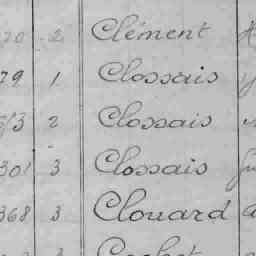 70 2 Clément
79 1 Clossais
513 2 Clossais
301 3 Clossais
368 3 Clouard